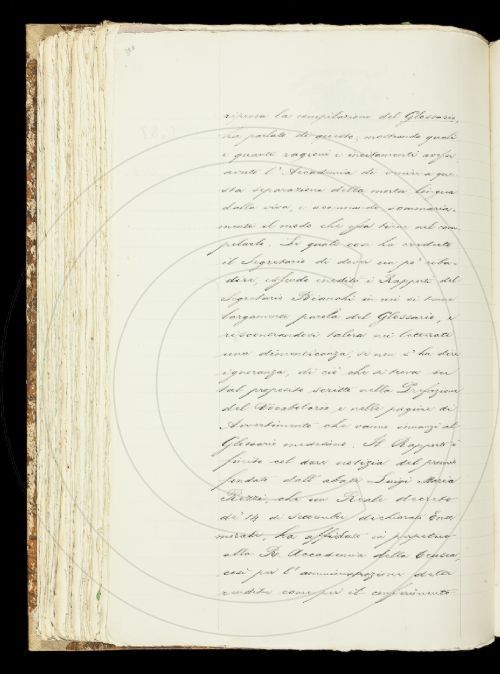 ripresa la compilazione del Glossario,
ha parlato di questo, mostrando quali
e quante ragioni e incitamenti avesse
avuto l'Accademia di venire a que-
sta separazione della morta lingua
dalla viva, e accennando sommaria-
mente il modo che essa tiene nel com-
pilarlo. Le quali cose ha creduto
il Segretario di dover un po' riba-
dire, essendo inedito i Rapporti del
Segretario Bianchi in cui si tiene
largamente parola del Glossario, e
riscontrandosi talora nei letterati
una dimenticanza, se non s'ha dire
ignoranza, di ciò che si trova su
tal proposito scritto nella Prefazione
del Vocabolario e nelle pagine di
Avvertimento che vanno innanzi al
Glossario medesimo. Il Rapporto è
finito col dare notizia del premio
fondato dall'abate Luigi Maria
Rezzi, che un Reale decreto
de' 14 di Settembre, dichiarato Ente
morale, ha affidato in perpetuo
alla R. Accademia della Crusca,
così per l'amministrazione della
rendita come per il conferimento